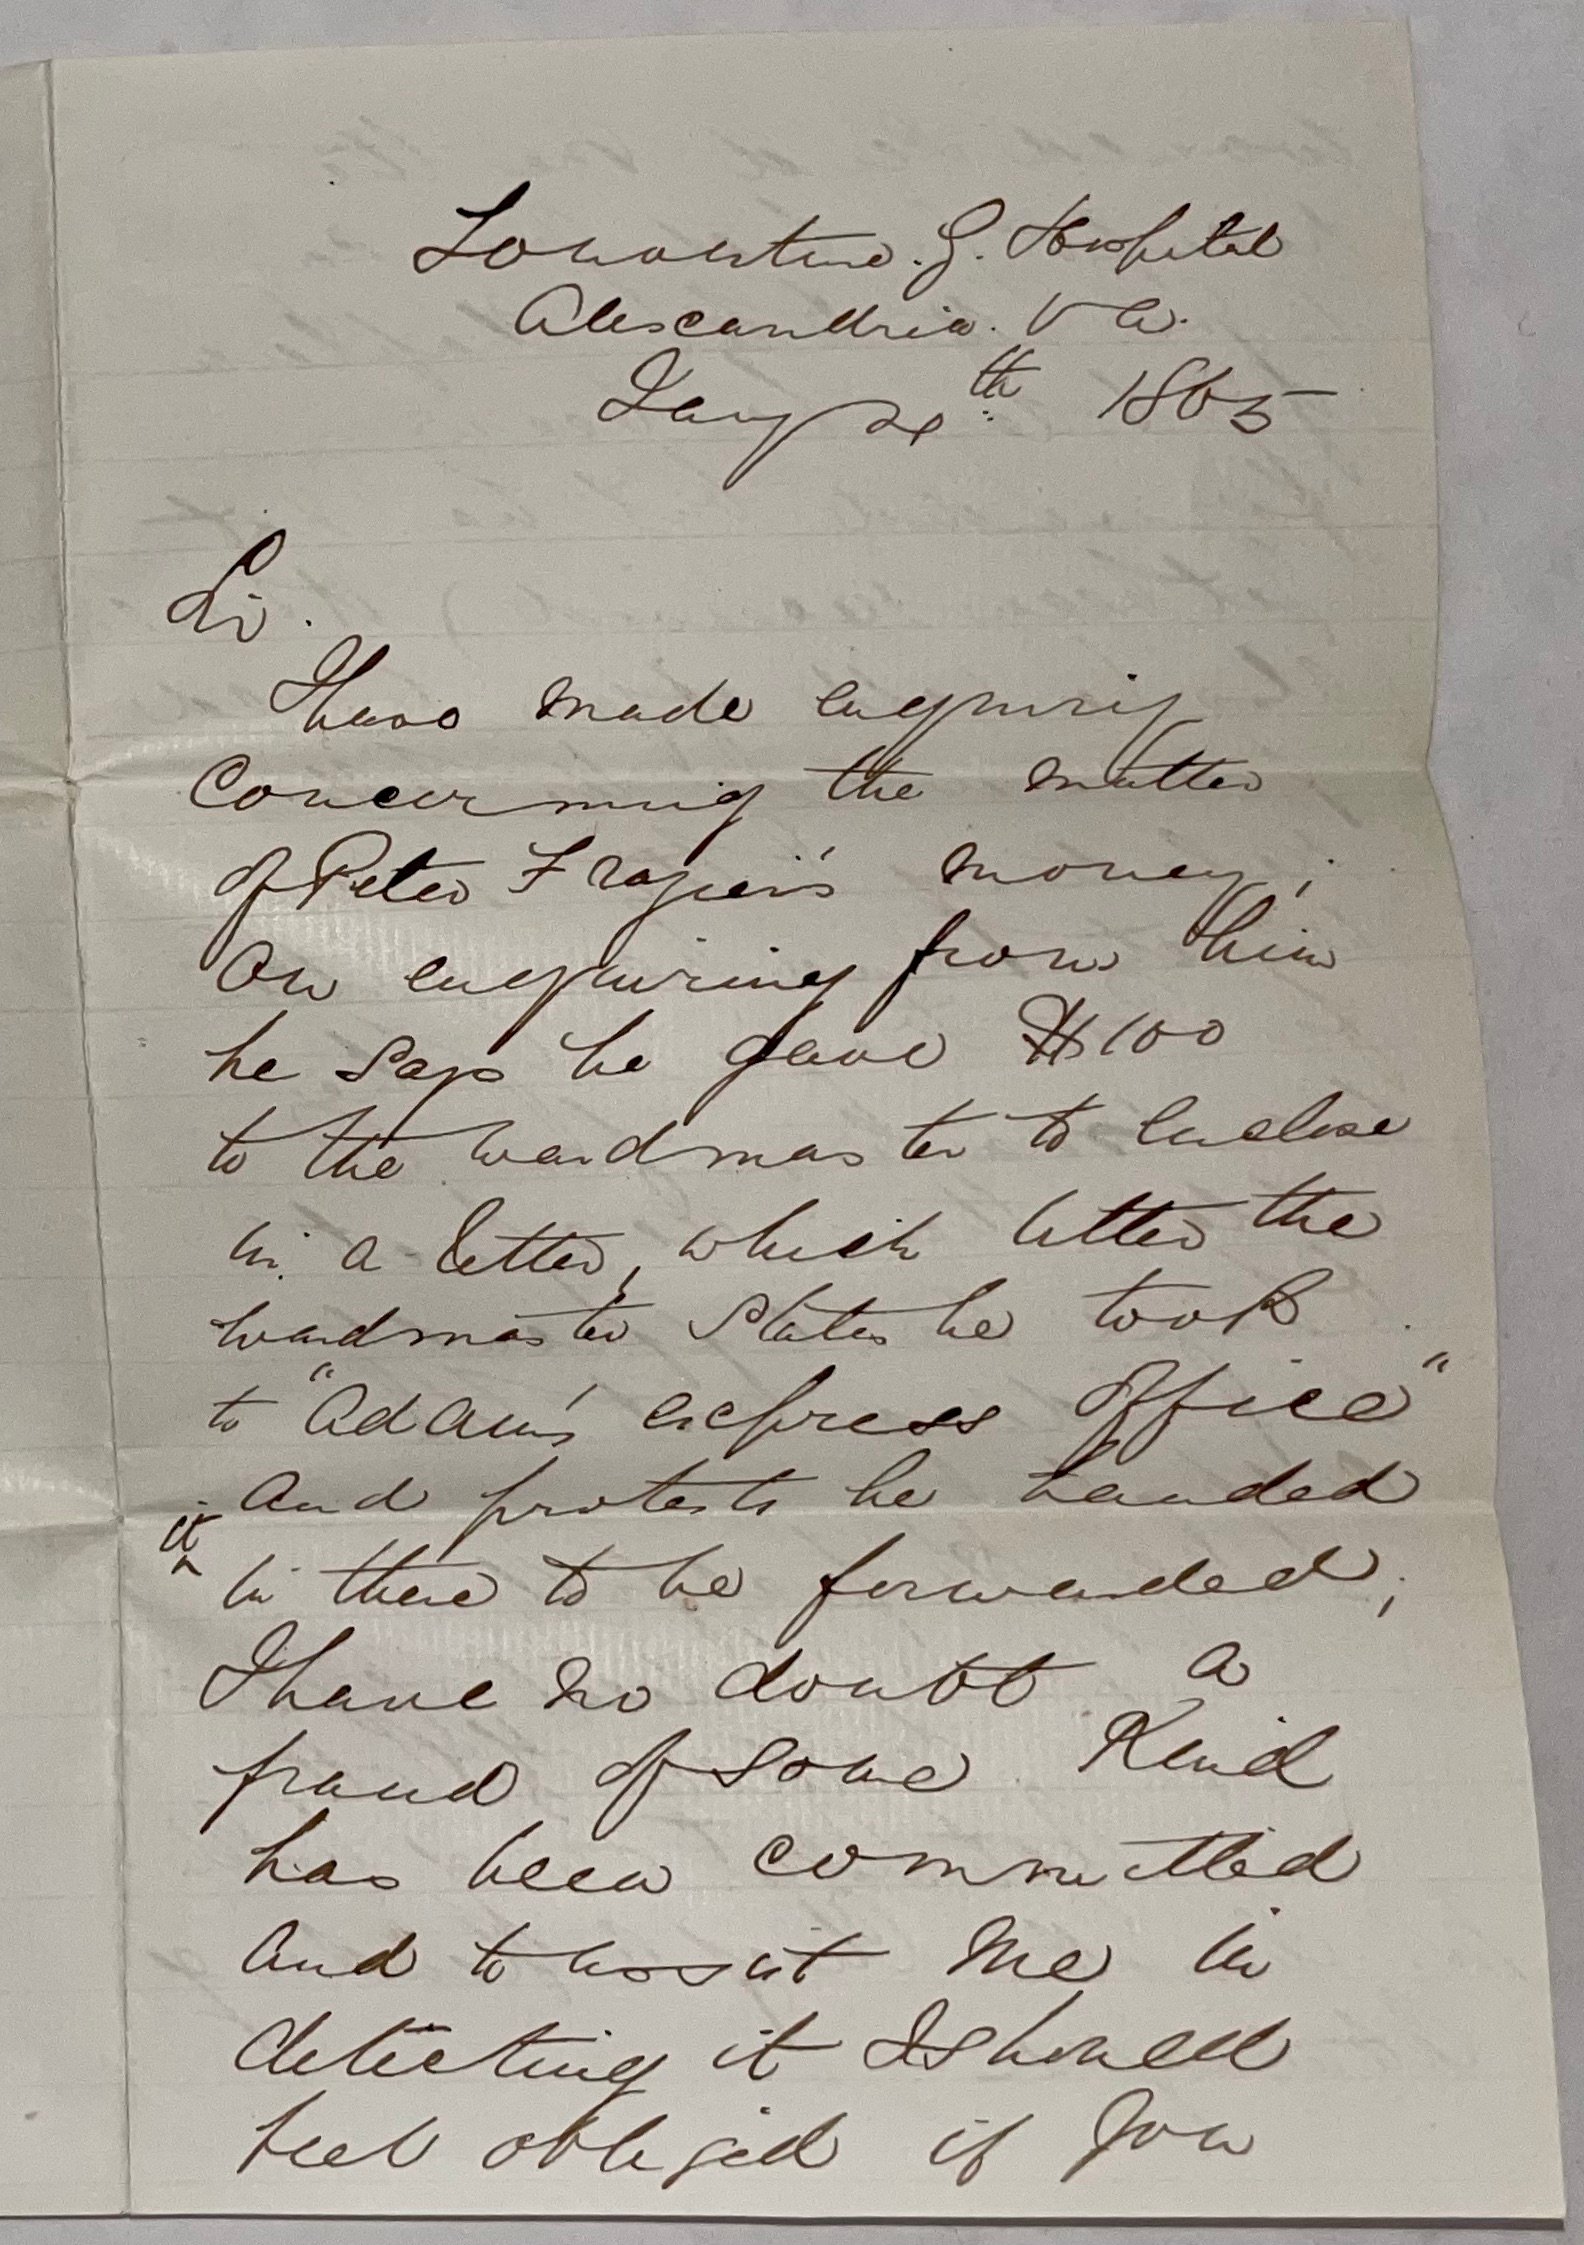 L'Ouverture. G. Hospital
Alexandria. Va.
Jany th 1865
Sir.
I have made enquiry
Concerning the matter
of Peter Frazier's money;
On enquiring from him
he says he gave $100
to the wardmaster to enclose
in a letter, which letter the
wardmaster states he took
to "Adam's express office"
and protests he handed
it in there to be forwarded;
I have no doubt a
fraud of some Kind
has been committed
and to assist me in
detecting it I should
feel obliged if you